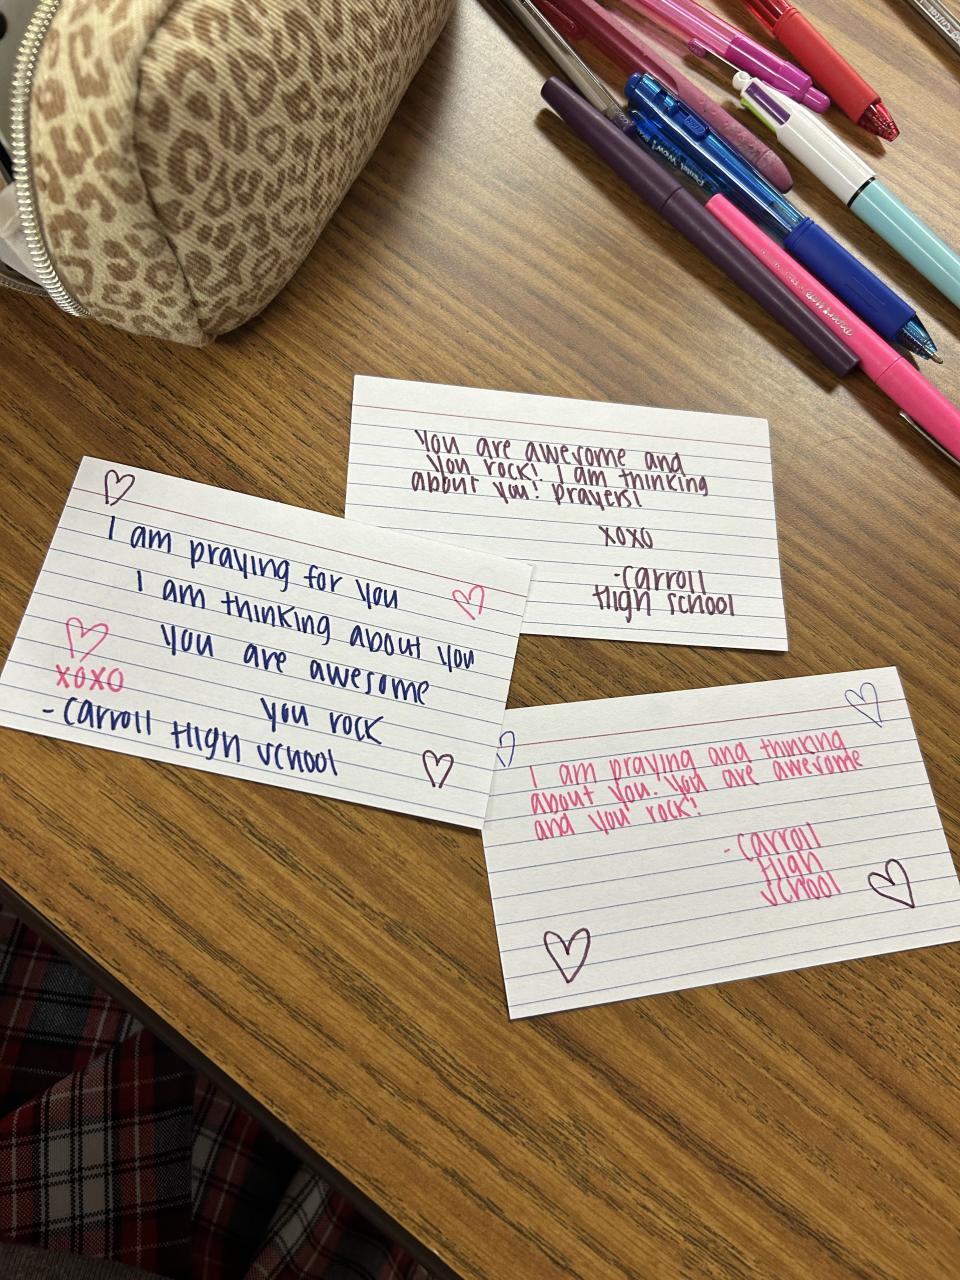 You are awesome and
you rock! I am thinking
about you! prayers!
xoxo
-Carroll
High School
I am praying for you
I am thinking about you
you are awesome
you rock
xoxo
- Carroll High School
I am praying and thinking
about you. You are awesome
and you rock!
- Carroll
High
School
Pentel Wow!